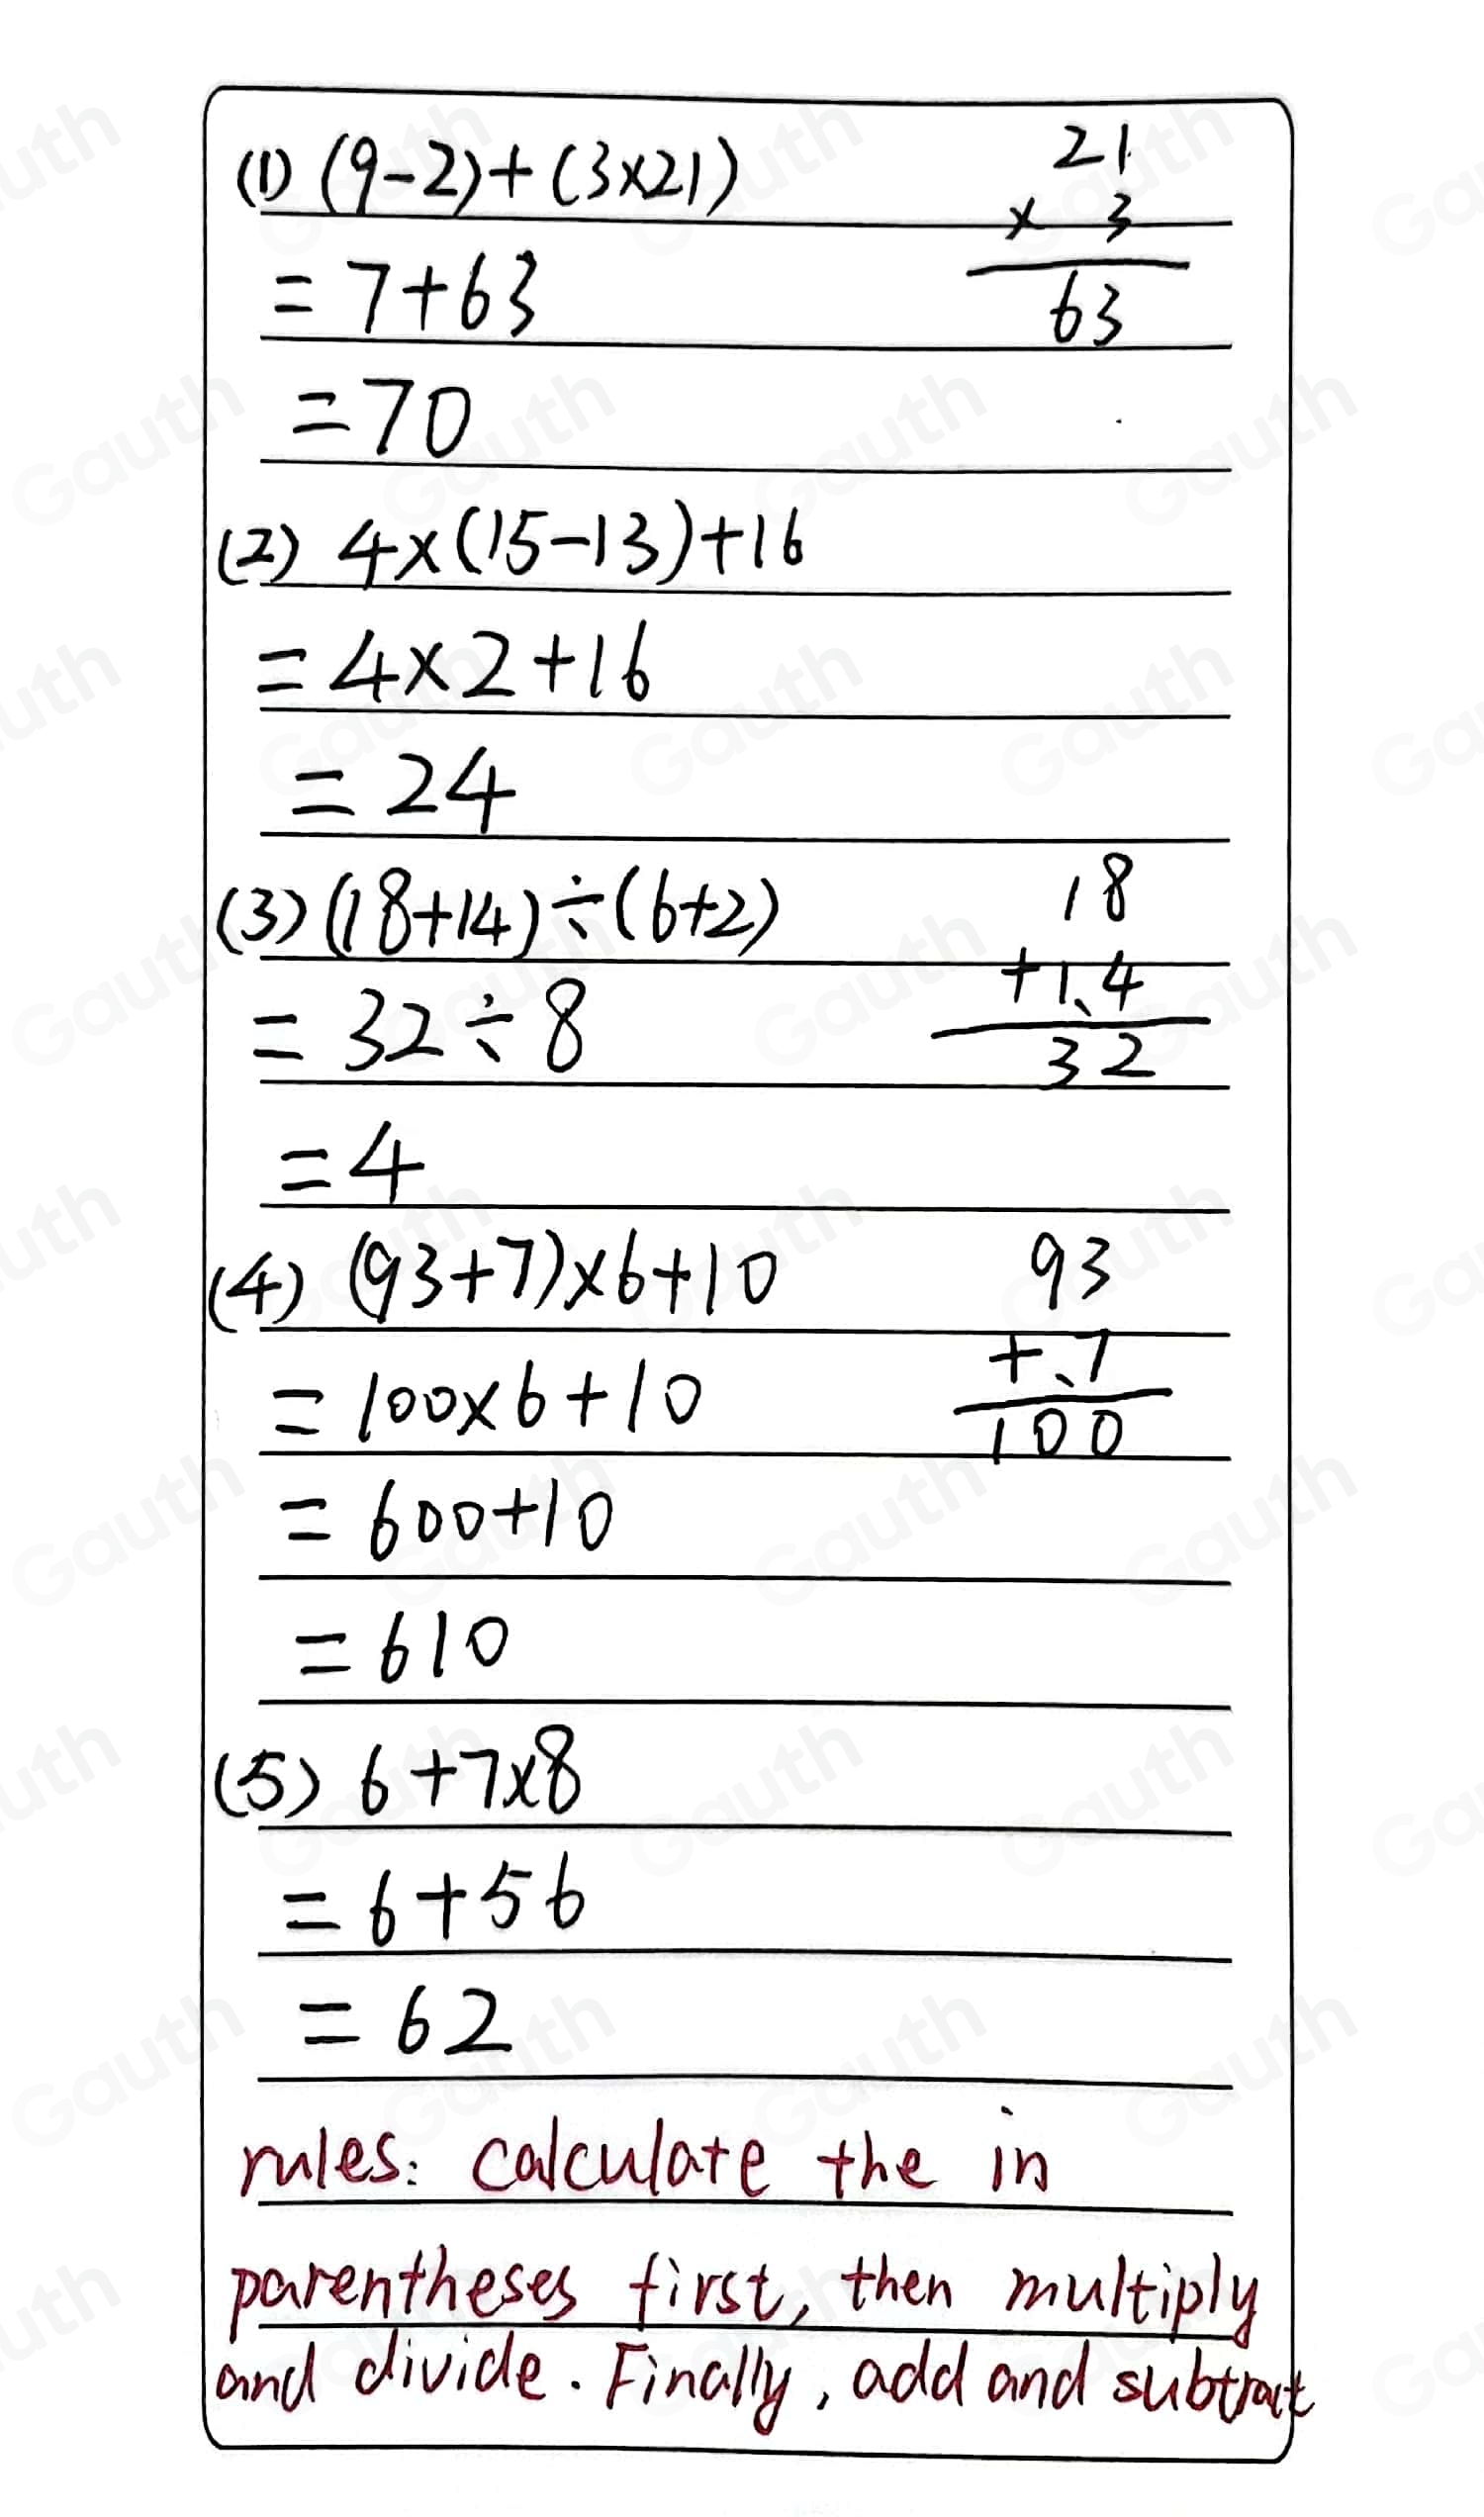 (1) (9-2)+(3×21)
21
× 3
63
= 7+63
= 70
(2) 4×(15-13)+16
= 4×2+16
= 24
(3) (18+14)÷(6+2)
18
+14
32
= 32÷8
= 4
(4) (93+7)×6+10
93
+7
100
= 100×6+10
= 600+10
= 610
(5) 6+7×8
= 6+56
= 62
rules: calculate the in
parentheses first, then multiply
and divide. Finally, add and subtract
Gauth